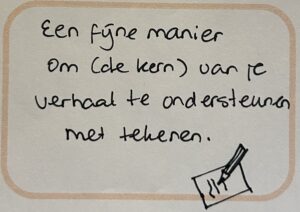 Een fijne manier
om (de kern) van je
verhaal te ondersteunen
met tekenen.